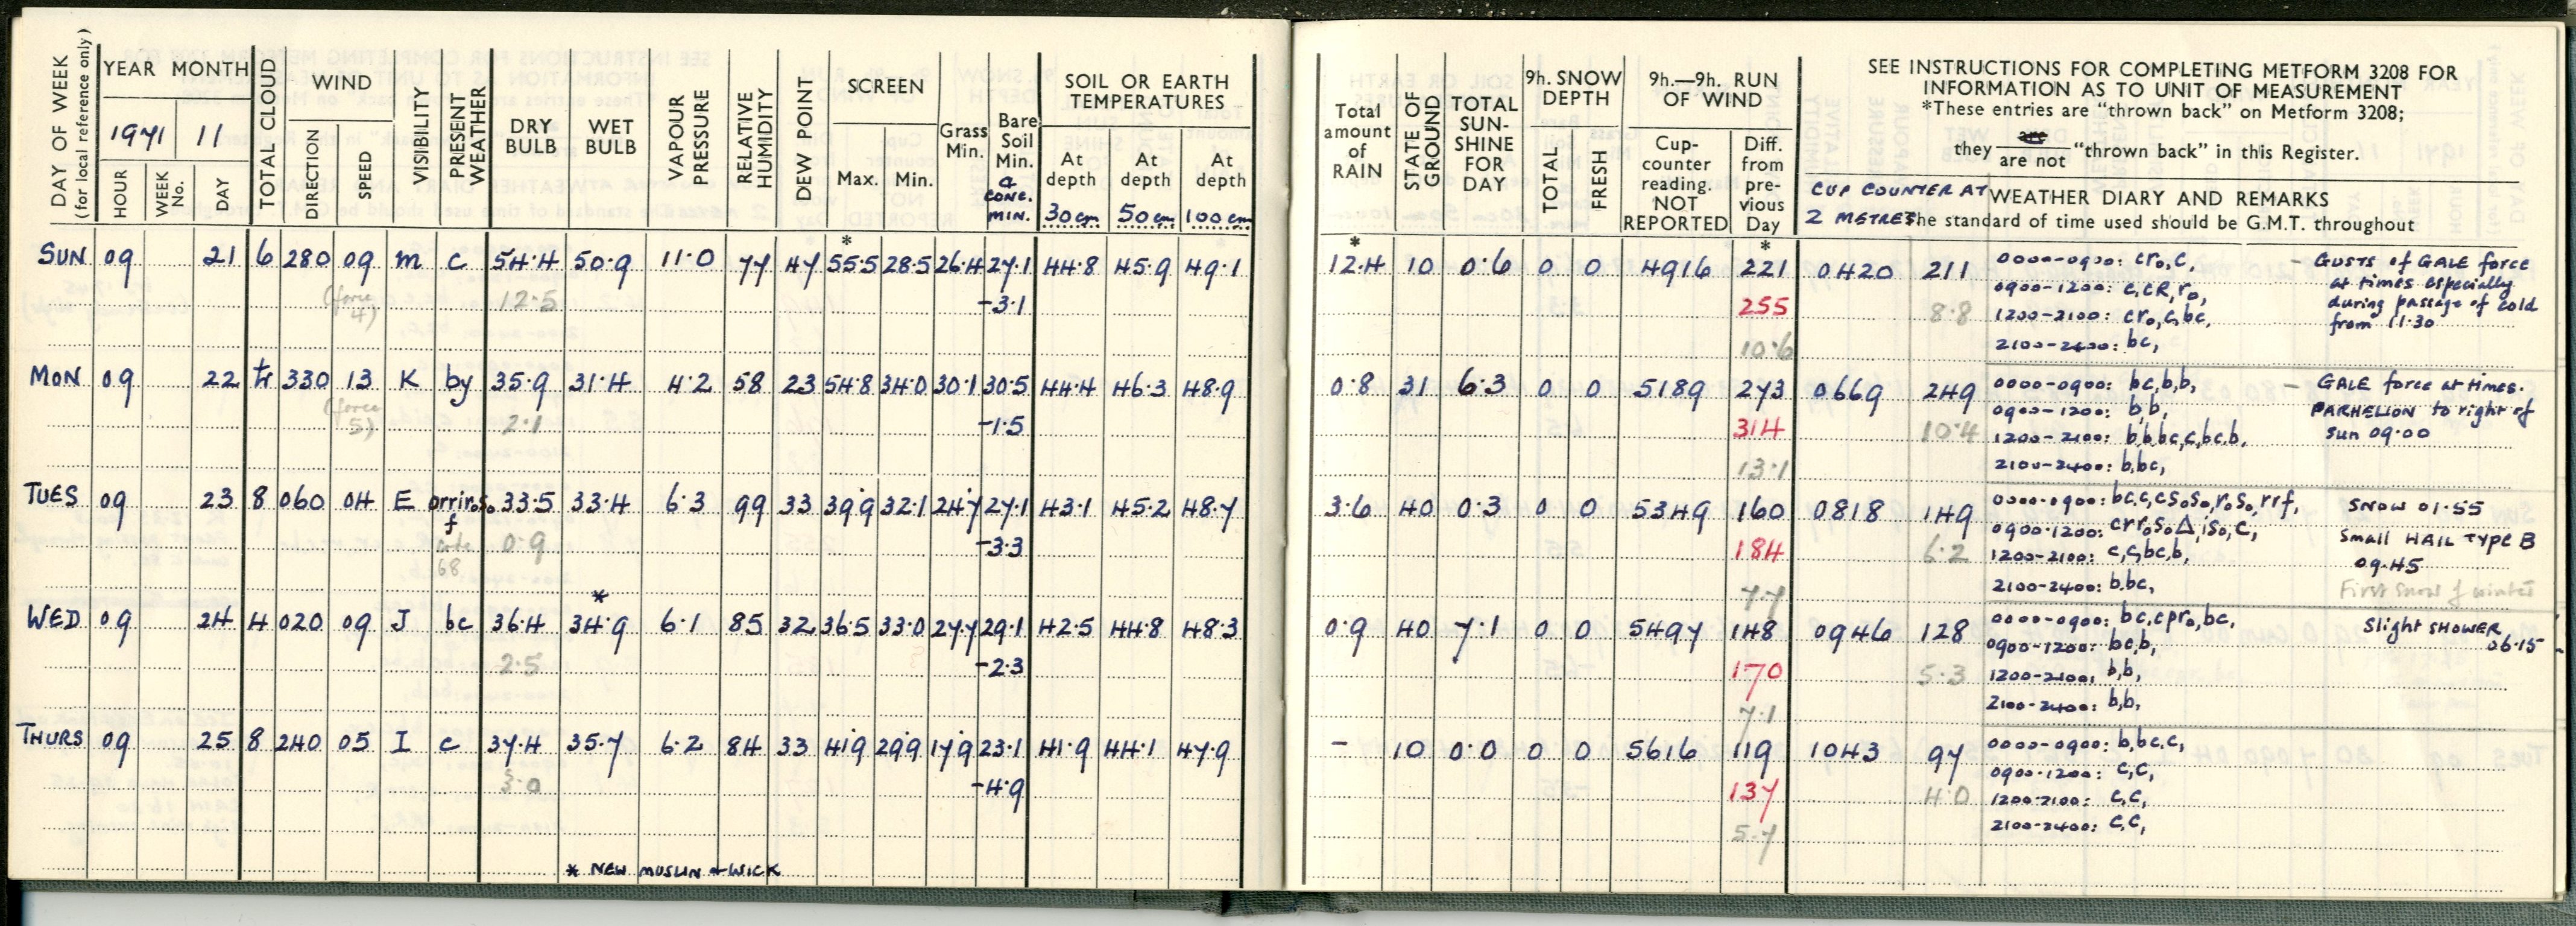 DAY OF WEEK
(for local reference only)
YEAR MONTH
1971 11
HOUR
WEEK No.
DAY
TOTAL CLOUD
WIND
DIRECTION
SPEED
VISIBILITY
PRESENT WEATHER
DRY BULB
WET BULB
VAPOUR PRESSURE
RELATIVE HUMIDITY
DEW POINT
SCREEN
Max. Min.
Grass Min.
Bare Soil Min.
a
CONC. MIN.
SOIL OR EARTH TEMPERATURES
At depth 30 cm
At depth 50 cm
At depth 100 cm
Total amount of RAIN
STATE OF GROUND
TOTAL SUN-SHINE FOR DAY
9h. SNOW DEPTH
TOTAL
FRESH
9h.—9h. RUN OF WIND
Cup-counter reading. NOT REPORTED
Diff. from pre-vious Day
SEE INSTRUCTIONS FOR COMPLETING METFORM 3208 FOR
INFORMATION AS TO UNIT OF MEASUREMENT
*These entries are "thrown back" on Metform 3208;
they are / are not "thrown back" in this Register.
CUP COUNTER AT 2 METRES
WEATHER DIARY AND REMARKS
The standard of time used should be G.M.T. throughout
* * *
SUN 09 21 6 280 09 m c 54.4 50.9 11.0 77 47 55.5 28.5 26.4 27.1 44.8 45.9 49.1 12.4 10 0.6 0 0 4916 221 0420 211 0000-0900: cr₀,c, – GUSTS of GALE force
(force 4) 12.5 -3.1 255 8.8 0900-1200: c,cR,r₀, at times especially
1200-2100: cr₀,c,bc, during passage of cold
from 11.30
10.6 2100-2400: bc,
MON 09 22 tr 330 13 K by 35.9 31.4 4.2 58 23 54.8 34.0 30.1 30.5 44.4 46.3 48.9 0.8 31 6.3 0 0 5189 273 0669 249 0000-0900: bc,b,b, – GALE force at times.
(force 5) 2.1 -1.5 314 10.4 0900-1200: b,b, PARHELION to right of
1200-2100: b,b,bc,c,bc,b, sun 09.00
13.1 2100-2400: b,bc,
TUES 09 23 8 060 04 E orrir₀s₀ 33.5 33.4 6.3 99 33 39.9 32.1 24.7 27.1 43.1 45.2 48.7 3.6 40 0.3 0 0 5349 160 0818 149 0000-0900: bc,c,cs₀s₀,r₀s₀,rrf, SNOW 01.55
f
code 68 0.9 -3.3 184 6.2 0900-1200: crr₀s₀Δ,is₀,c, Small HAIL TYPE B
1200-2100: c,c,bc,b, 09.45
7.7 2100-2400: b,bc, First snow of winter
*
WED 09 24 4 020 09 J bc 36.4 34.9 6.1 85 32 36.5 33.0 27.7 29.1 42.5 44.8 48.3 0.9 40 7.1 0 0 5497 148 0946 128 0000-0900: bc,cpr₀,bc, Slight SHOWER
2.5 -2.3 170 5.3 0900-1200: bc,b, 06.15
1200-2100: b,b,
7.1 2100-2400: b,b,
THURS 09 25 8 240 05 I c 37.4 35.7 6.2 84 33 41.9 29.9 17.9 23.1 41.9 44.1 47.9 – 10 0.0 0 0 5616 119 1043 97 0000-0900: b,bc,c,
3.0 -4.9 137 4.0 0900-1200: c,c,
1200-2100: c,c,
5.7 2100-2400: c,c,
* NEW MUSLIN & WICK